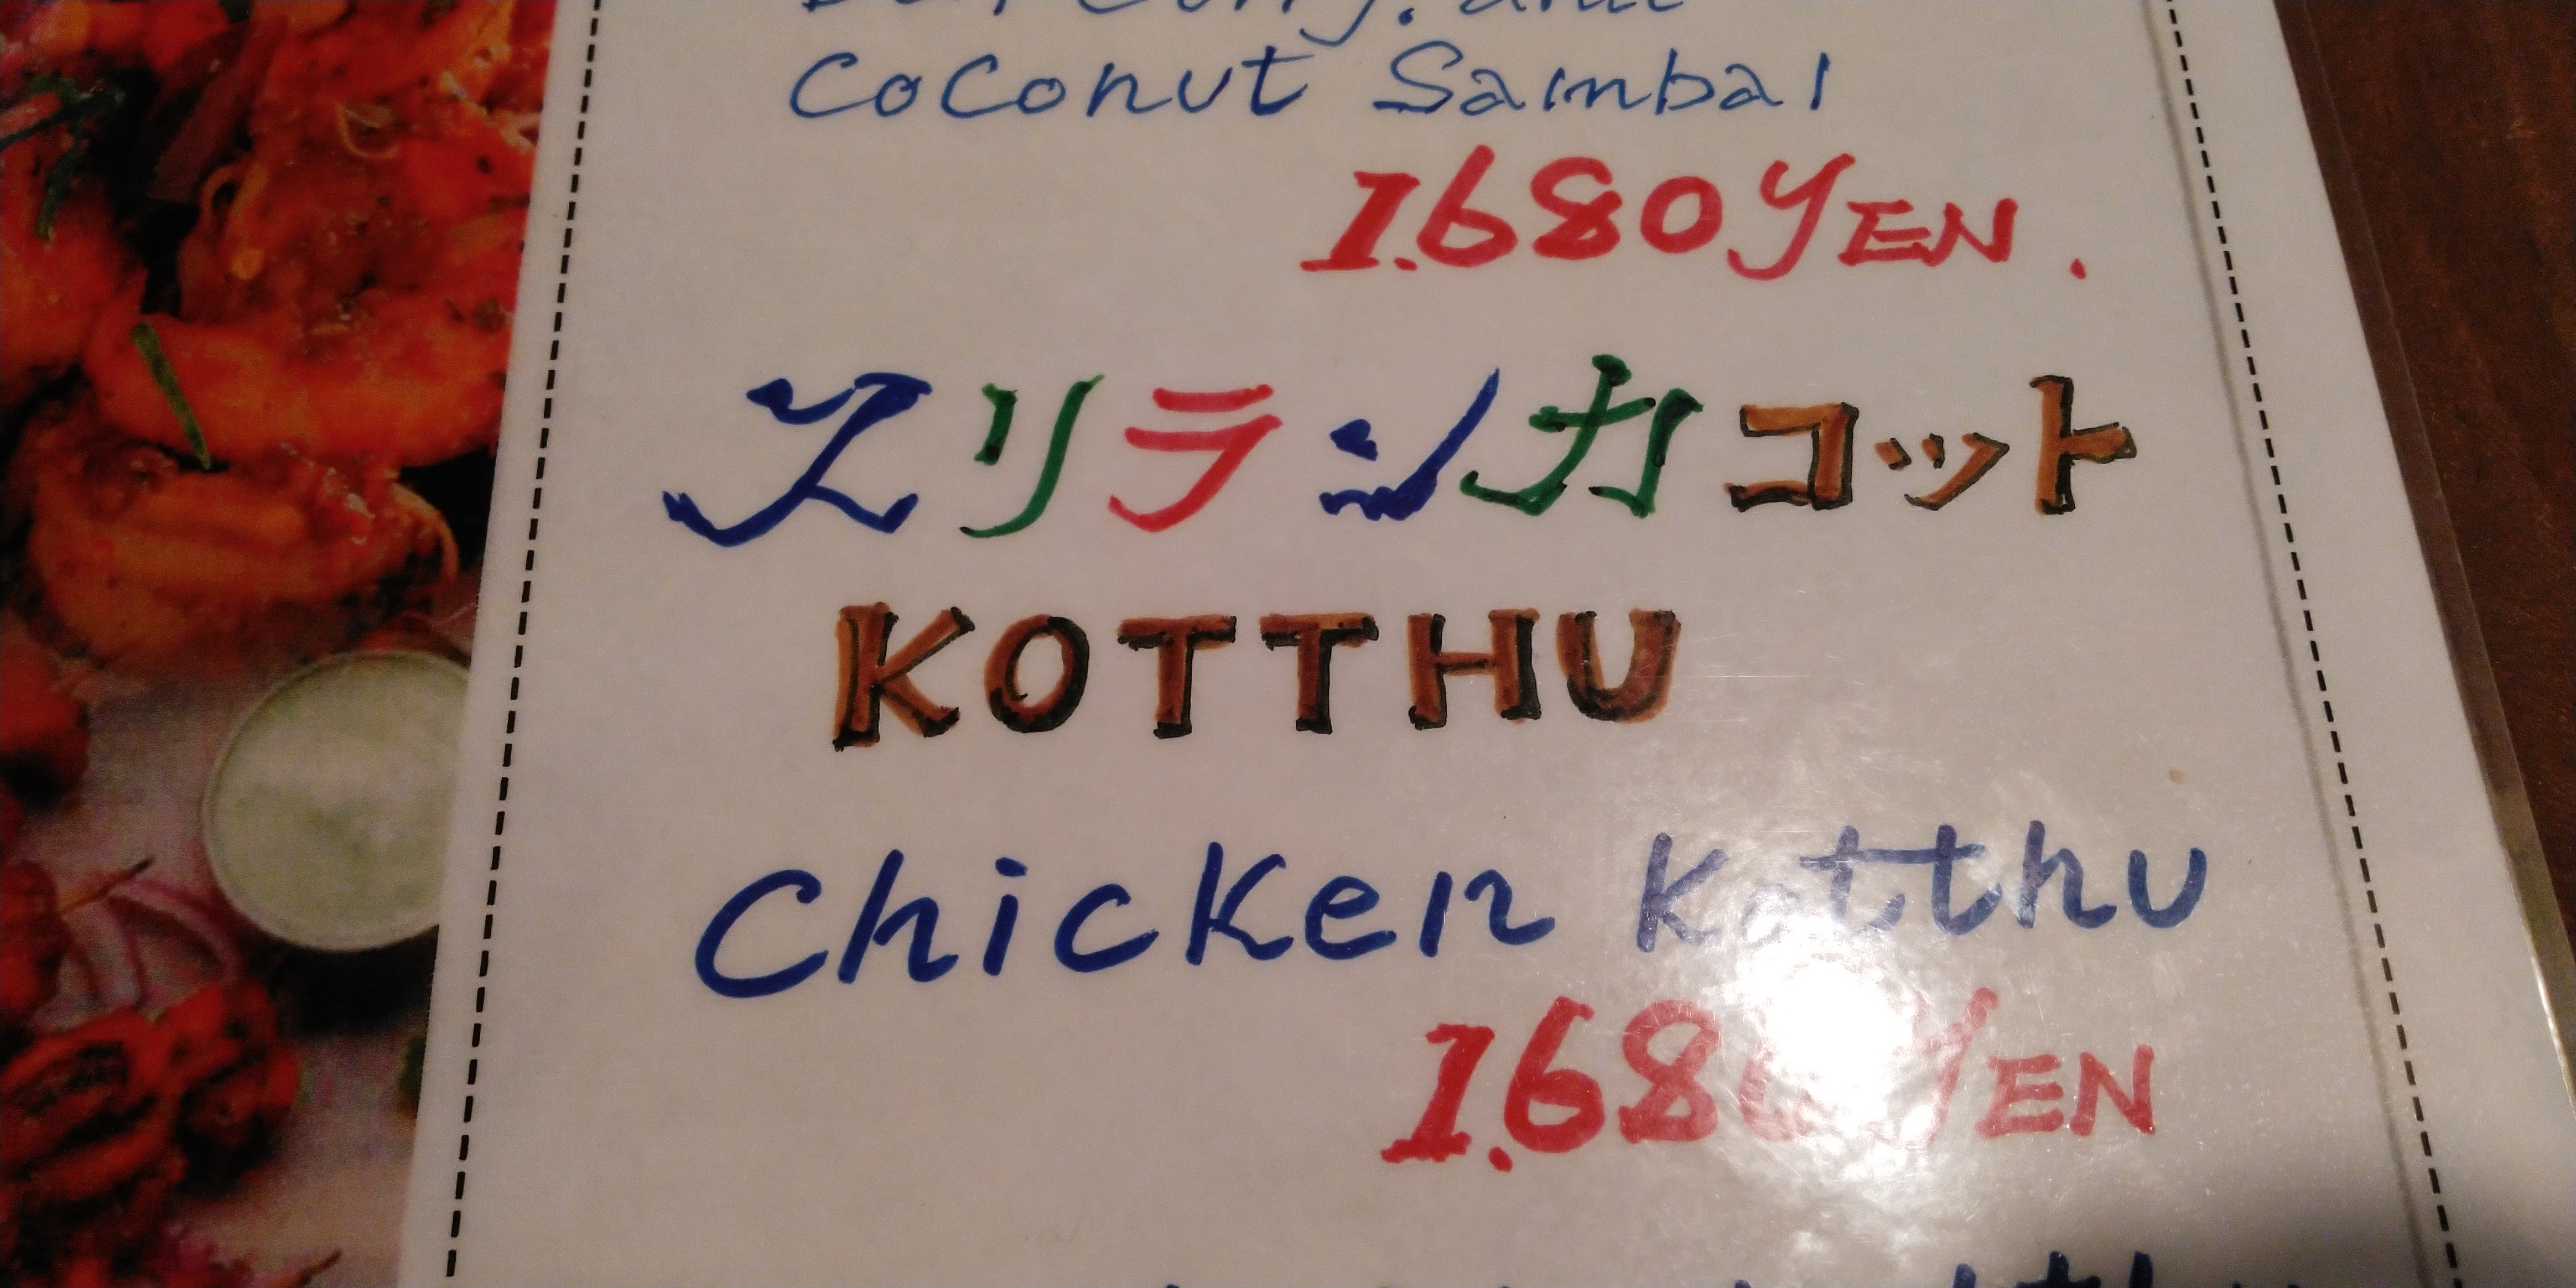 Coconut Sambal
1.680 YEN.
スリランカコット
KOTTHU
Chicken Kotthu
1.680 YEN